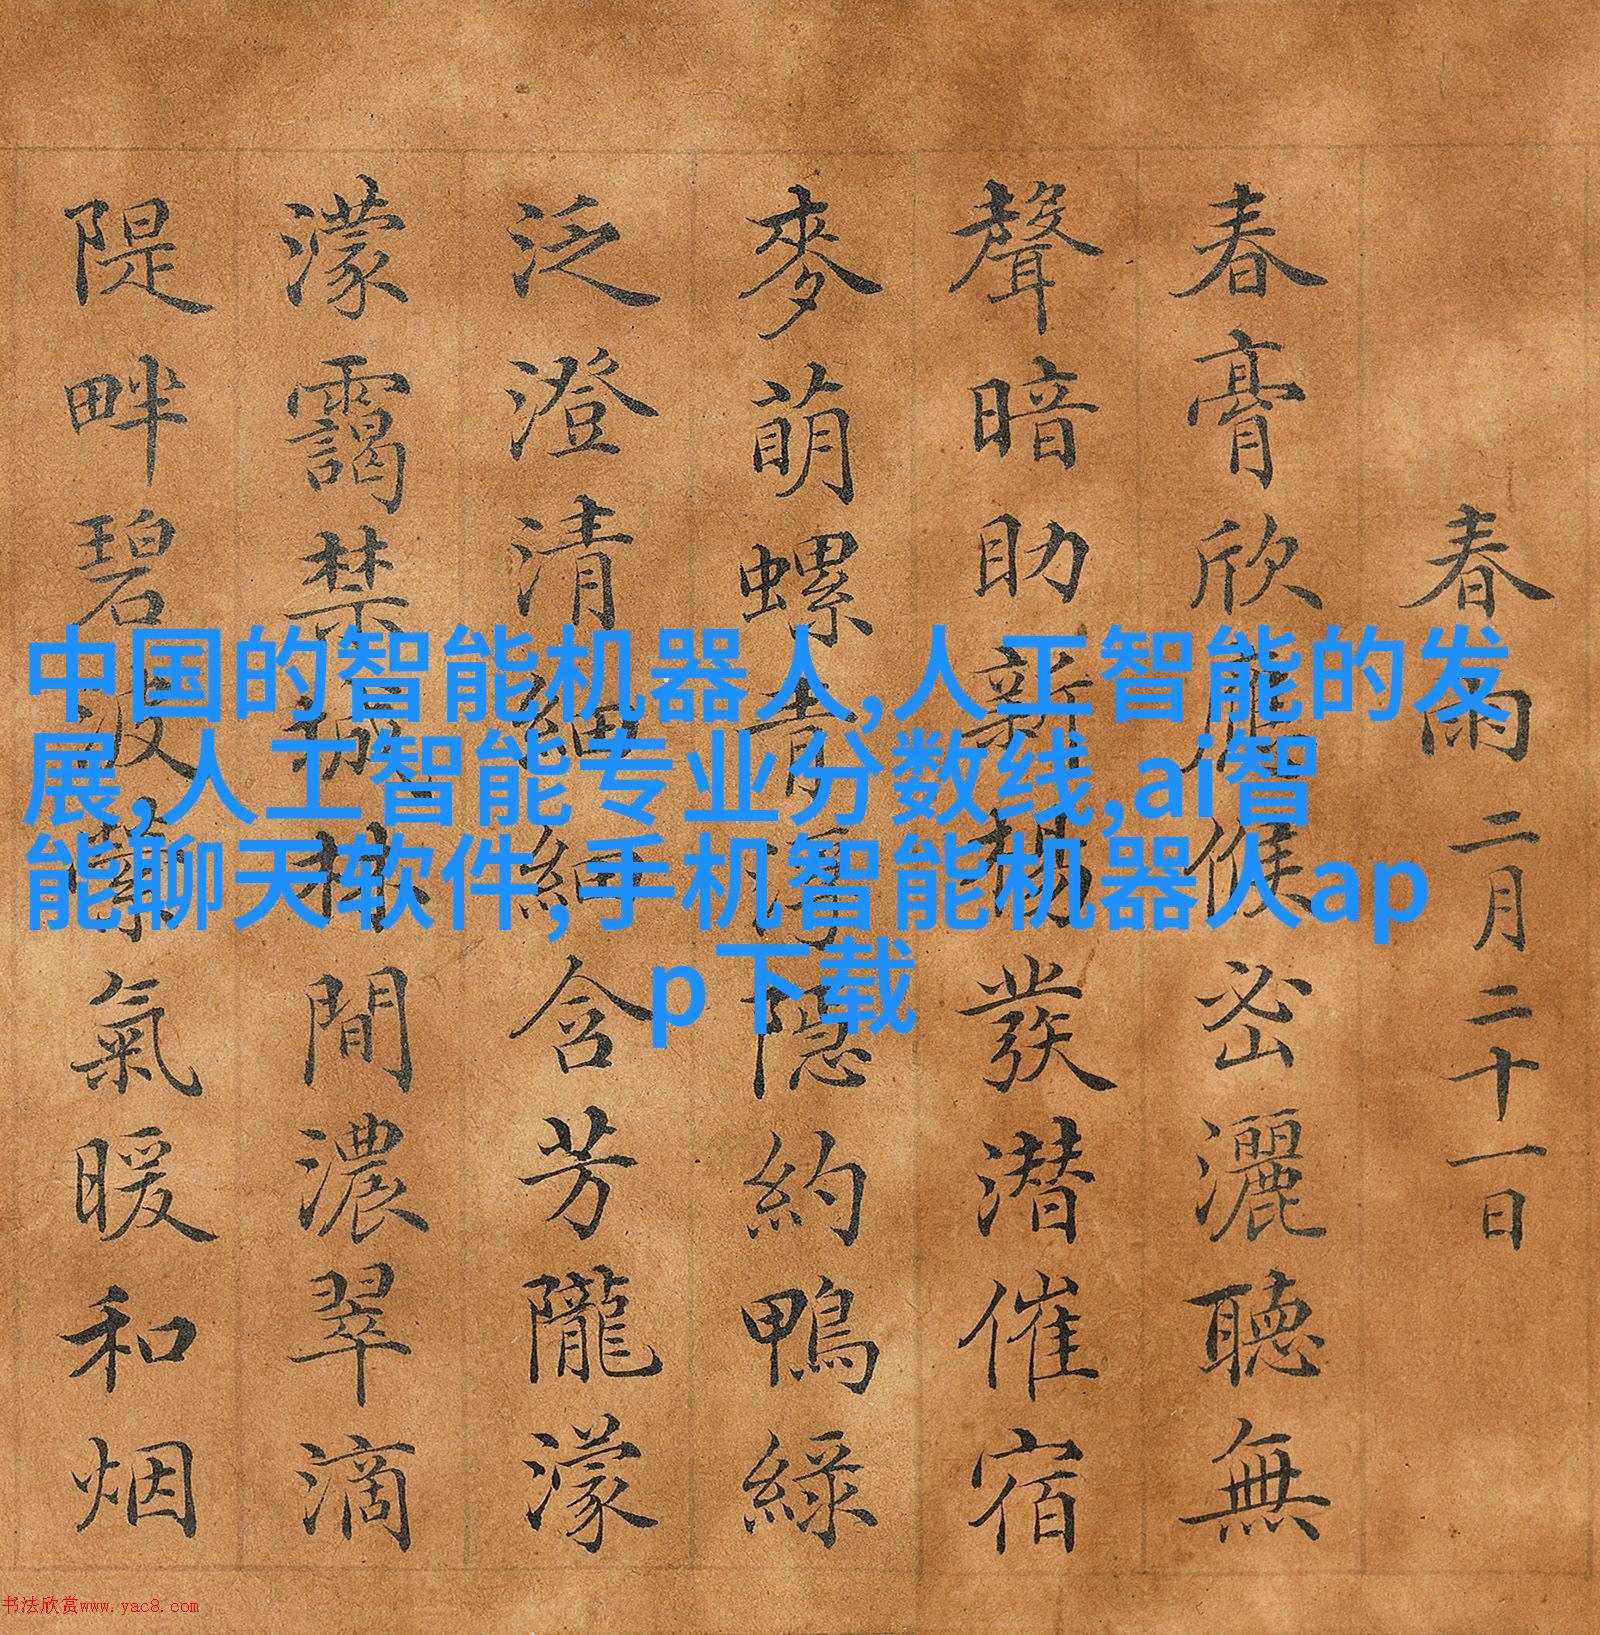 春雨 二月二十一日
春膏欣應候密灑聽無
聲暗助新發潜催宿
麥萌螺青浮隱約鴨綠
泛澄清細細含芳隴濛
濛靄禁城間濃翠滴
隄畔碧波氣暖和烟
中国的智能机器人,人工智能的发
展,人工智能专业分数线,ai智
能聊天软件,手机智能机器人ap
p下载
书法欣赏www.yac8.com